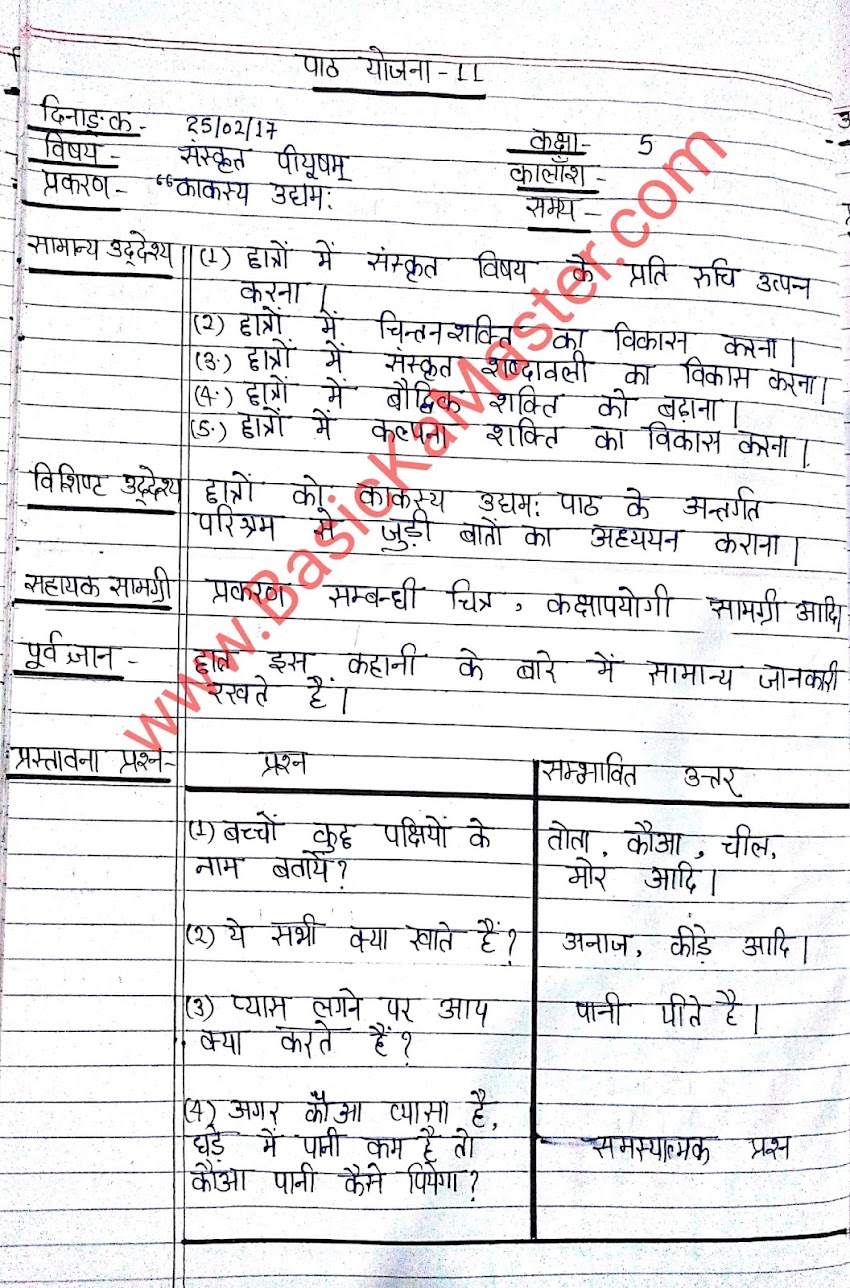 पाठ योजना - 11
दिनाङ्क - 25/02/17
कक्षा - 5
विषय - संस्कृत पीयूषम्
कालाँश -
प्रकरण - “काकस्य उद्यमः
समय -
सामान्य उद्देश्य (1) छात्रों में संस्कृत विषय के प्रति रुचि उत्पन्न
करना।
(2) छात्रों में चिन्तनशक्ति का विकास करना।
(3.) छात्रों में संस्कृत शब्दावली का विकास करना।
(4.) छात्रों में बौद्धिक शक्ति को बढ़ाना।
(5.) छात्रों में कल्पना शक्ति का विकास करना।
विशिष्ट उद्देश्य छात्रों को काकस्य उद्यमः पाठ के अन्तर्गत
परिश्रम से जुड़ी बातों का अध्ययन कराना।
सहायक सामग्री प्रकरण सम्बन्धी चित्र, कक्षापयोगी सामग्री आदि।
पूर्व ज्ञान - छात्र इस कहानी के बारे में सामान्य जानकारी
रखते हैं।
प्रस्तावना प्रश्न- प्रश्न सम्भावित उत्तर
(1) बच्चों कुछ पक्षियों के तोता, कौआ, चील,
नाम बतायें? मोर आदि।
(2) ये सभी क्या खाते हैं? अनाज, कीड़े आदि।
(3) प्यास लगने पर आप पानी पीते है।
क्या करते हैं?
(4) अगर कौआ प्यासा है,
घड़े में पानी कम है तो समस्यात्मक प्रश्न
कौआ पानी कैसे पियेगा?
www.BasicKaMaster.com